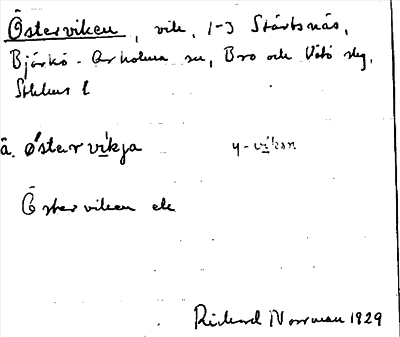 Österviken, vik, 1-3 Stärbsnäs,
Björkö-Arholma sn, Bro och Vätö skg,
Sthlms l
ä. ø̀starvìkja y-vìkan
Österviken ek
Richard Norrman 1929